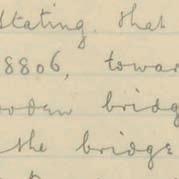 stating. that
8806, towar
ooden bridg
the bridge